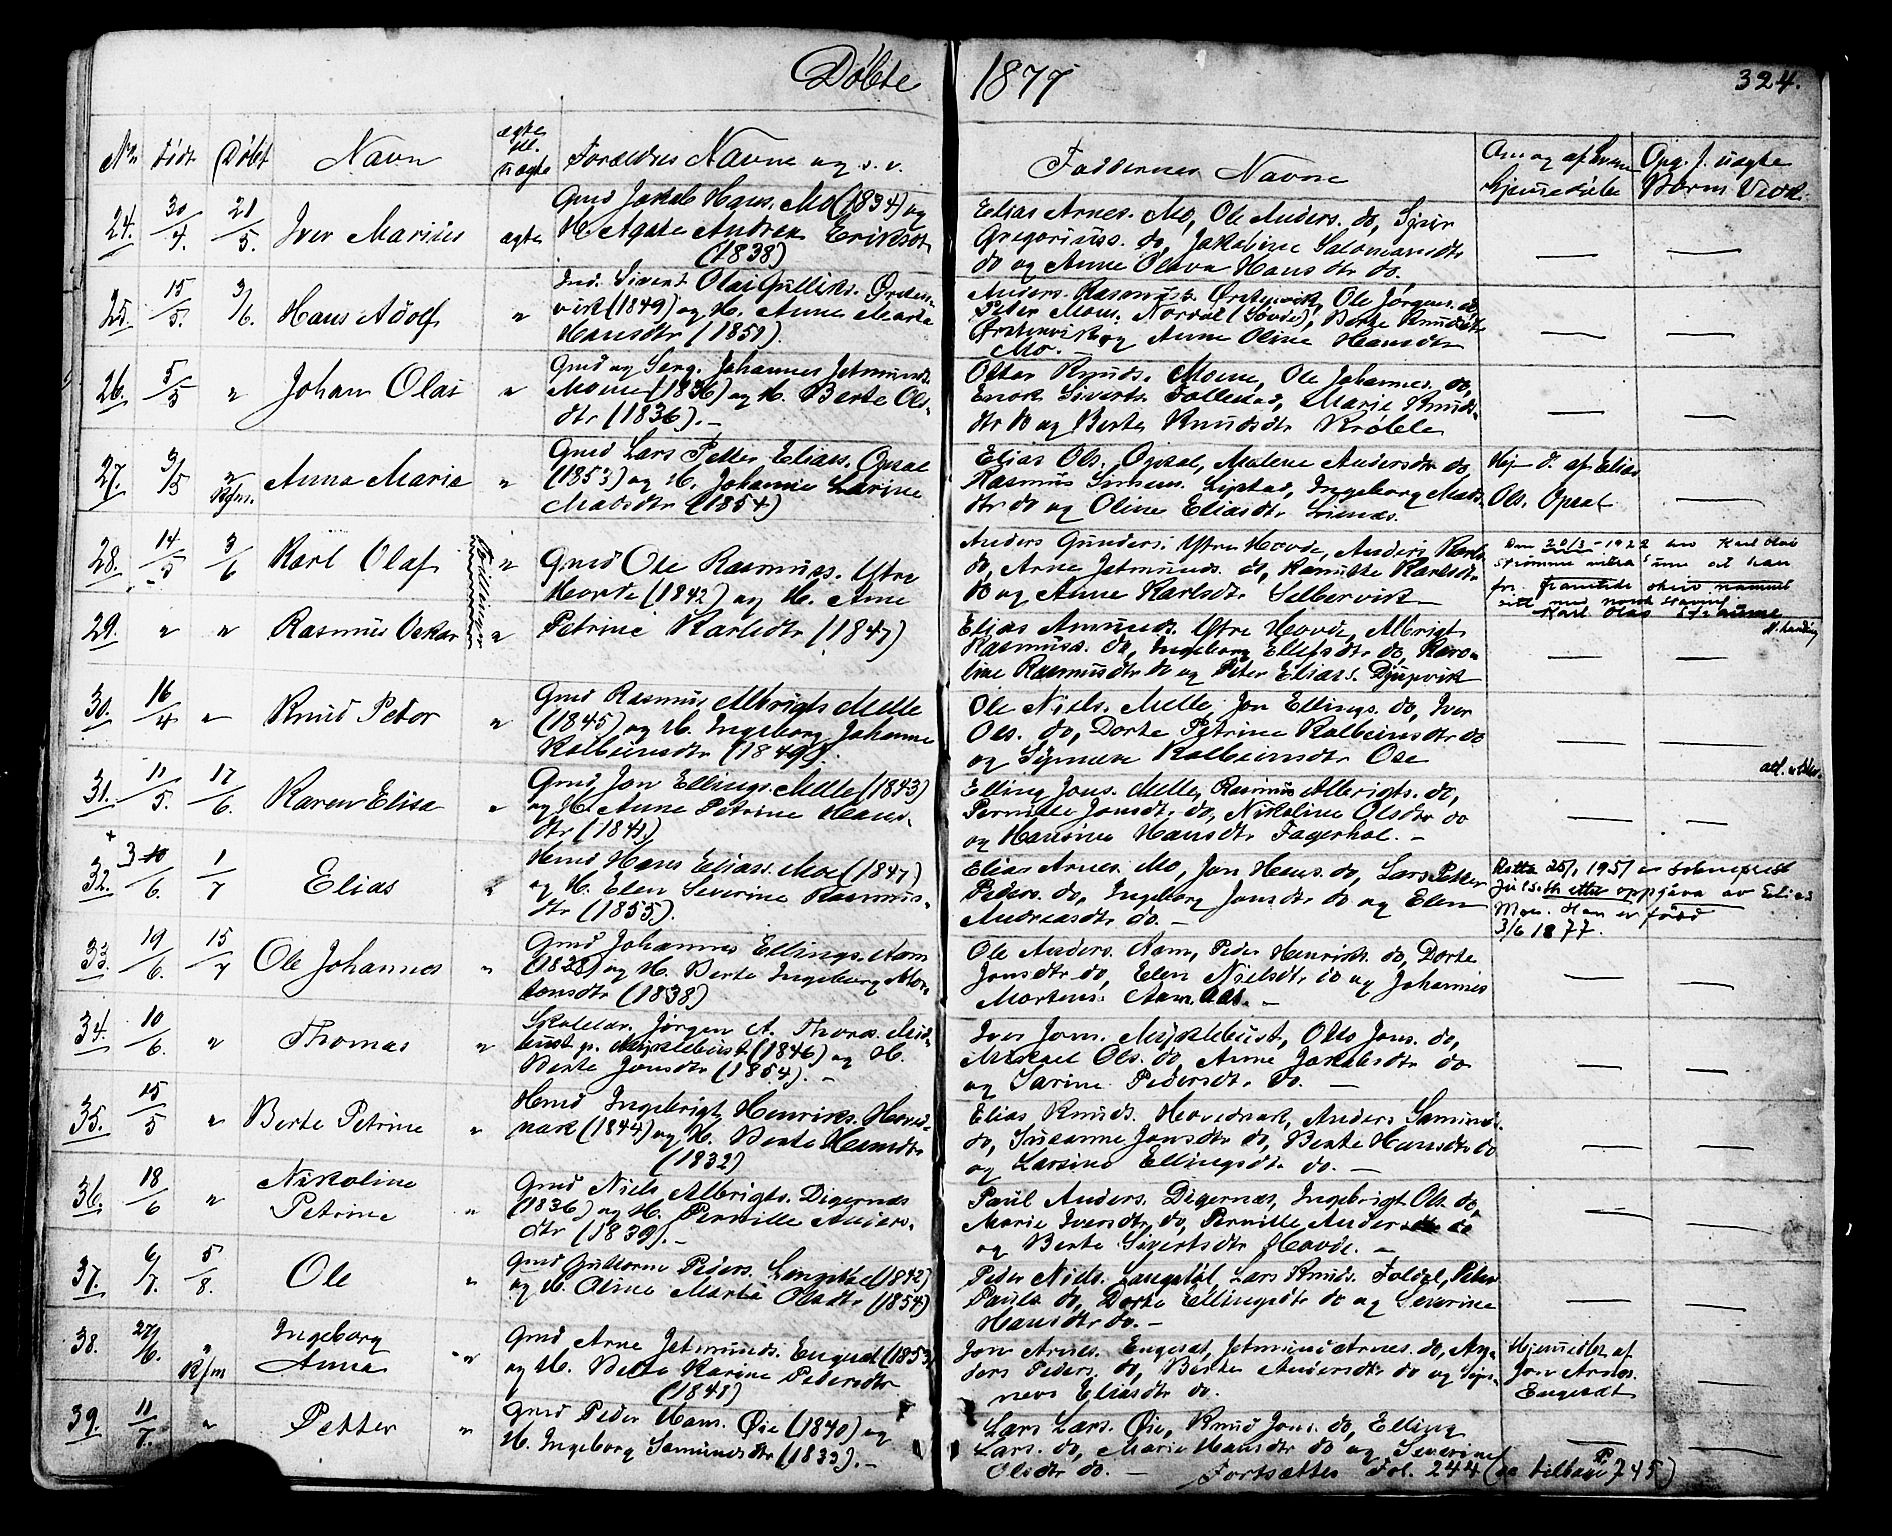 Døbte 1877 324.
No. Født Døbt Navn ægte ell. uægte Forældres Navne og s. v. Faddernes Navne
24. 30/4. 21/5. Iver Marius ægte
Gmd Jakob Hans. Mo (1834) og
H. Agate Andrea Eriksdtr
(1838)
Elias Arnes. Mo, Ole Anders. do,
Gregoriuss. do, Jakobine Salomonsdtr
do og Anne Olava Hansdtr do.
25. 15/5. 3/6. Hans Adolf "
Ind. Sivert Olai Gulliks. Ørsten-
vik (1849) og H. Anne Marta
Hansdtr (1851).
Anders Rasmuss. Ørstenvik, Ole Jørgens. do,
Peder Mons. Nordal (Søvde), Berte Knudsdtr
Ørstenvik og Anne Oline Hansdtr
Mo. -
26. 5/5 " Johan Olai "
Gmd og Serg. Johannes Jetmunds.
Moene (1836) og H. Berte Ols-
dtr (1836). -
Ottar Knuds. Moene, Ole Johannes. do,
Enok Siverts. Follestad, Marie Knuds-
dtr do og Berte Knudsdtr Krøvle
27. 3/5 " Kfm. Anna Maria "
Gmd Lars Petter Eliass. Opsal
(1853) og H. Johanne Larine
Madsdtr (1854)
Elias Ols. Opsal, Malene Andersdtr do
Rasmus Simens. Lystad, Ingeborg Mads-
dtr do og Oline Eliasdtr
Hj. d. af Elias
Ols. Opsal
28. 14/5 3/6 Karl Olaf Tvillinger "
Gmd Ole Rasmuss. Ytre
Hovde (1842) og H. Ane
Petrine Karlsdtr (1847)
Anders Gunders. Ytre Hovde, Anders Karls.
do, Arne Jetmunds. do, Rasmutte Karlsdtr
do og Anne Karlsdtr Selbervik
Den 20/3 - 1922 Karl Olai
at han
for framtida skriv namnet
sitt
Karl Olas
29. " " Rasmus Oskar "
Elias Amunds. Ytre Hovde, Albrigt
Rasmuss. do, Ingeborg Ellefsdtr do, Karo-
line Rasmusdtr do og Peter Elias s. Djupvik
30. 16/4 " Knud Peder "
Gmd Rasmus Albrigts. Melle
(1845) og H. Ingeborg Johanne
Kolbeinsdtr (1849).
Ole Niels. Melle, Jon Ellings. do, Iver
Ols. do, Dorte Petrine Kolbeinsdtr do
og Synneve Kolbeinsdtr Ose
31. 11/5. 17/6. Karen Elisa "
Gmd Jon Ellings. Melle (1843)
og H. Anne Petrine Hans-
dtr (1841)
Elling Jons. Melle, Rasmus Albrigts. do,
Pernille Jonsdtr do, Nikoline Olsdtr do
og Hansine Hansdtr Fagerhol. -
32. 3/6. 1/7 Elias "
Hmd Hans Eliass. Moe (1847)
og H. Elen Severine Rasmus-
dtr (1855).
Elias Arnes. Mo, Jon Hans. do, Lars Petter
Peders. do, Ingeborg Jonsdtr do og Elen
Andreasdtr do. -
Retta 25/1 1951 av sokneprest
etter oppgåva av Elias
Moe. Han er fødd
3/6 1877.
33. 19/6. 15/7 Ole Johannes "
Gmd Johannes Ellings. Aam
(1828) og H. Berte Ingeborg Mor-
tensdtr (1838)
Ole Anders. Aam, Peder Henriks. do, Dorte
Jonsdtr do, Elen Nielsdtr do og Johannes
Mortens. Aam. -
34. 10/6. " Thomas "
Skolelær. Jørgen A. Thoras.
p. Myklebust (1846) og H.
Berte Jonsdtr (1854). -
Iver Jons. Myklebust, Otto Jons. do,
Mikael Ols. do, Anne Jakobsdtr do
og Sarine Pedersdtr do. -
35. 15/5 " Berte Petrine "
Hmd Ingebrigt Henriks. Hoved-
nak (1844) og H. Berte Hansdtr
(1832)
Elias Knuds. Hovednak, Anders Samunds.
do, Susanne Jonsdtr do, Berte Hansdtr do
og Larsine Ellingsdtr do. -
36. 18/6 " Nikoline
Petrine "
Gmd Niels Albrigts. Digernæs
(1836) og H. Pernille Anders-
dtr (1839). -
Paul Anders. Digernæs, Ingebrigt Ols. do,
Marie Iversdtr do, Pernille Andersdtr do
og Berte Sivertsdtr Hovde. -
37. 6/7. 5/8. Ole "
Gmd Guttorm Peders. Langstøl (1842)
og H. Oline Marta Olsdtr (1854)
Peder Niels. Langstøl, Lars Knuds. Foldal, Peter
Pauls. do, Dorte Ellingsdtr do og Severine
Hansdtr do. -
38. 27/6. " Kfm Ingeborg
Anna "
Gmd Arne Jetmunds. Engeset (1853)
og H. Berte Karine Pedersdtr
(1848)
Jon Arnes. Engeset, Jetmund Arnes. do, An-
ders Peders. do, Berte Andersdtr do og Syn-
neve Eliasdtr do.
Hjemmedøbt af
Jon Arnes.
Engesæt
39. 11/7. " Petter "
Gmd Peder Hans. Øie (1840) og
H. Ingeborg Samundsdtr (1833). -
Lars Lars. Øie, Knud Jons. do, Elling
Lars. do, Marie Hansdtr do og Severine
Olsdtr do. - Fortsættes Fol. 244 (se tilbage P. 745)